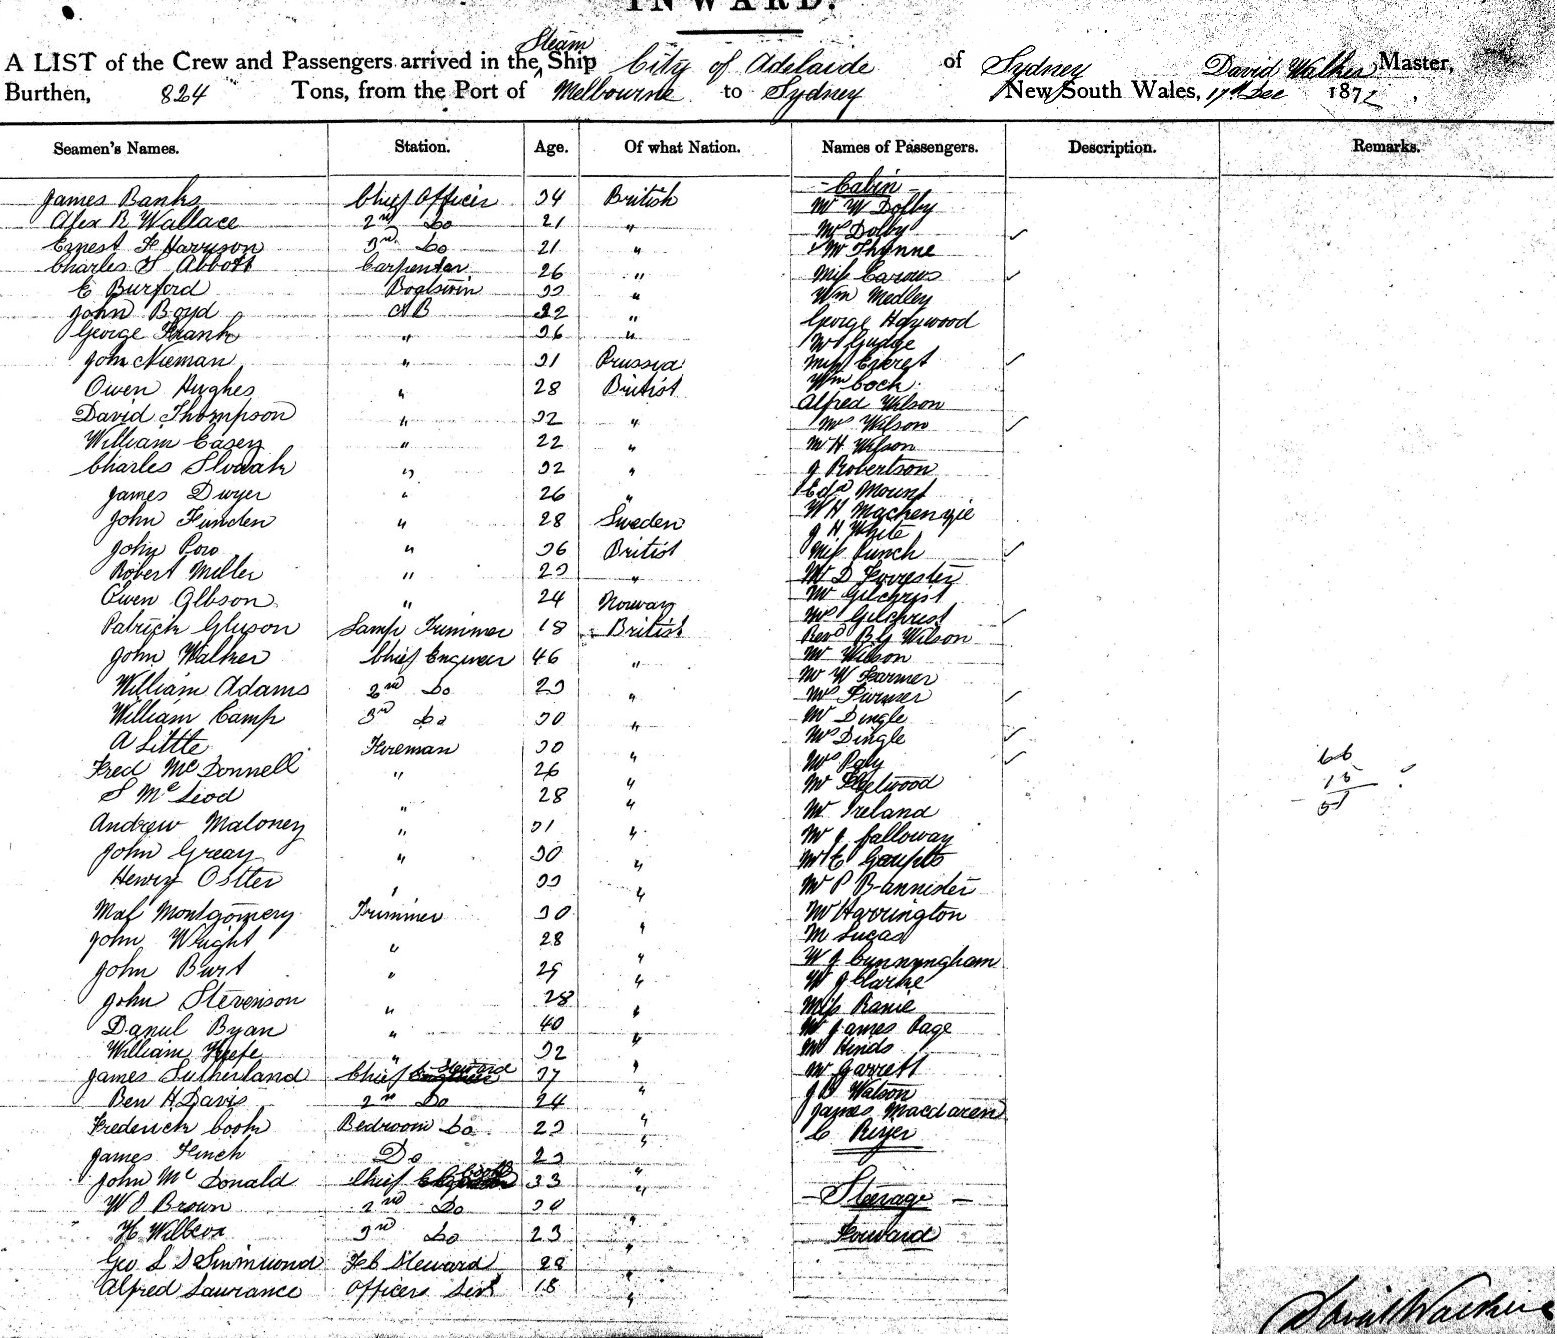 INWARD.
A LIST of the Crew and Passengers arrived in the Steam Ship City of Adelaide of Sydney David Walker Master,
Burthen, 824 Tons, from the Port of Melbourne to Sydney New South Wales, 17th Dec 1872,
Seamen's Names. Station. Age. Of what Nation. Names of Passengers. Description. Remarks.
James Banks Chief Officer 34 British
Alex R Wallace 2nd Do 21 "
Ernest F Harrison 3rd Do 21 "
Charles S Abbott Carpenter 26 "
E Burford Boatswin 33 "
John Boyd AB 22 "
George Frank " 36 "
John Nieman " 31 Prussia
Owen Hughes " 28 British
David Thompson " 32 "
William Casey " 22 "
Charles " 32 "
James Dwyer " 26 "
John Funden " 28 Sweden
John Row " 36 British
Robert Miller " 23 "
Owen Olbson " 24 Norway
Patrick Glyson Lamp Trimmer 18 British
John Walker Chief Engineer 46 "
William Adams 2nd Do 23 "
William Camp 3rd Do 30 "
A Little Fireman 30 "
Fred McDonnell " 26 "
S McLeod " 28 "
Andrew Maloney " 31 "
John Greay " 30 "
Henry Ostler " 33 "
Montgomery Trimmer 30 "
John Wright " 28 "
John Burt " 29 "
John Stevenson " 28 "
Daniel Byan " 40 "
William Keefe " 32 "
James Sutherland Chief Steward 37 "
Ben H Davis 2nd Do 24 "
Frederick Cook Bedroom Do 23 "
James Finch Do 23 "
John McDonald Chief Cook 33 "
W Brown 2nd Do 30 "
H Willcox 3rd Do 23 "
Geo L Simmond Feb Steward 28 "
Alfred Laurance Officers Servt 18 "
Cabin
Mr W Dolby
Mrs Dolby
Mr Thynne
Miss
Wm Medley
George Haywood
Mr Gudge
Miss
Wm Cock
Alfred Wilson
Mrs Wilson
Mr H Wilson
J Robertson
Edd Mount
W H Mackenzie
J H White
Miss Punch
Mr D Forrester
Mr Gilchrist
Mrs Gilchrist
Revd B G Wilson
Mr Wilson
Mr W Farmer
Mrs Farmer
Mr Dingle
Mrs Dingle
Mrs
Mr Fleetwood
Mr Ireland
Mr J Galloway
Mr E
Mr P Bannister
Mr Harrington
M Lucas
W J Cunnyngham
W J Clarke
Miss Ranie
Mr James Page
Mr Hinds
Mr Garrett
J B Watson
James MacLaren
C Reiyer
Steerage
Forward
66
15
51
David Walker